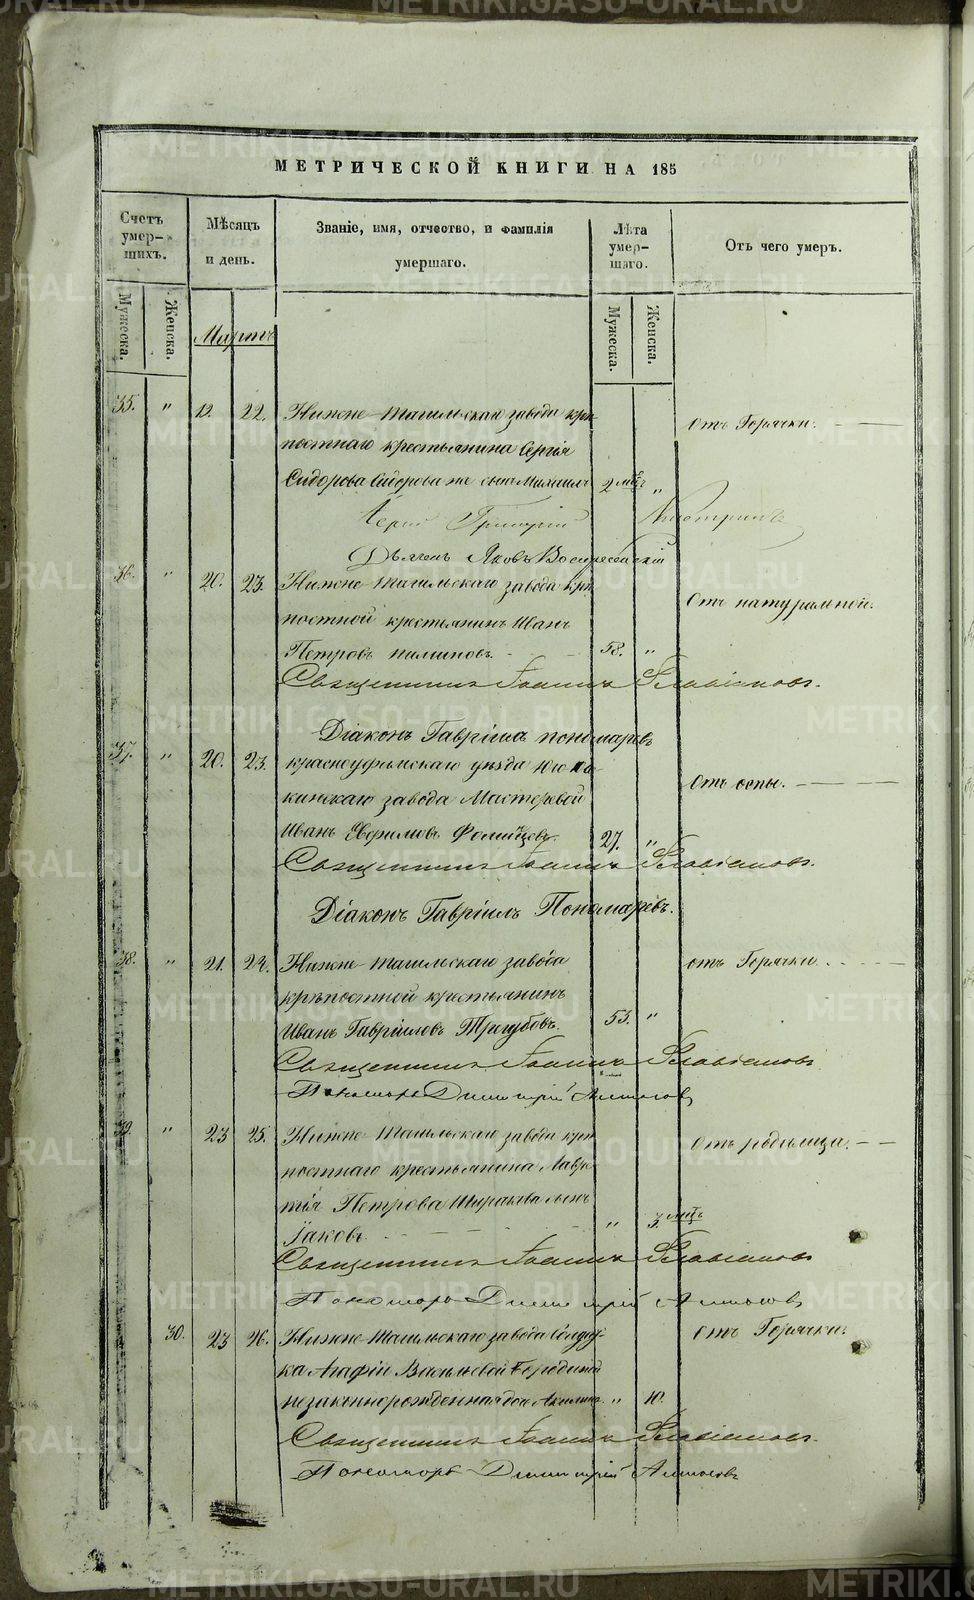 МЕТРИЧЕСКОЙ КНИГИ НА 185
Счетъ умер-шихъ.
Мѣсяцъ и день.
Званіе, имя, отчество, и фамилія умершаго.
Лѣта умер-шаго.
Отъ чего умеръ.
Мужеска.
Женска.
Мужеска.
Женска.
Мартъ
35. " 19. 22. Нижне-Тагильскаго завода крѣ-
отъ Горячки.
постнаго крестьянина Сергія
Сидорова Сидорова же сынъ Михаилъ 2 мѣс. "
Іерей Григорій
Дьяконъ Яковъ Воскресенскій
36. " 20. 23. Нижне-Тагильскаго завода крѣ-
Отъ натуральной.
постной крестьянинъ Иванъ
Петровъ 58. "
Священникъ Іоаннъ Флавіановъ.
Діаконъ Гавріилъ Пономаревъ
37. " 20. 23. красноуфимскаго уѣзда Юго
Отъ оспы.
кинскаго завода Мастеровой
Иванъ Евфимовъ 27. "
Священникъ Іоаннъ Флавіановъ.
Діаконъ Гавріилъ Пономаревъ.
38. " 21. 24. Нижне-Тагильскаго завода
отъ Горячки
крѣпостной крестьянинъ
Иванъ Гавріиловъ Тригубовъ. 53. "
Священникъ Іоаннъ Флавіановъ
Пономарь Димитрій
39. " 23 25. Нижне-Тагильскаго завода крѣ-
Отъ родимца.
постнаго крестьянина Лавре-
тія Петрова сынъ
Іаковъ " 3. мѣс.
Священникъ Іоаннъ Флавіановъ
Пономарь Димитрій
30. 23 26. Нижне-Тагильскаго завода Солдат-
отъ Горячки.
ка Агафіи Васильевой
незаконнорожденная дочь Акилина " 10.
Священникъ Іоаннъ Флавіановъ.
Пономарь Димитрій
METRIKI.GASO-URAL.RU